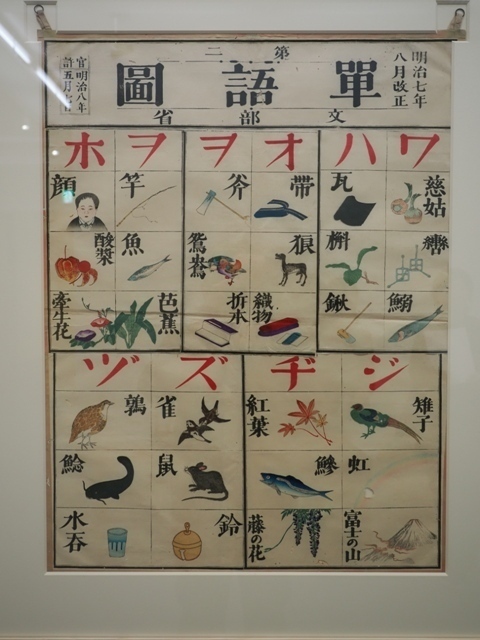 第二
單語圖
文部省
明治七年
八月改正
官明治八年
ワ
慈姑
轡
鰯
ハ
瓦
槲
鍬
オ
帶
狼
織物
ヲ
斧
鴛鴦
折本
ヲ
竿
魚
芭蕉
ホ
顔
酸漿
牽牛花
ジ
雉子
虹
富士の山
ヂ
紅葉
鰺
藤の花
ズ
雀
鼠
鈴
ヅ
鶉
鯰
水呑